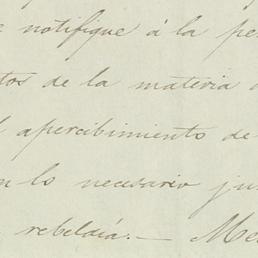 notifique á la
de la materia
apercibimiento de
lo necesario
rebeldía.—